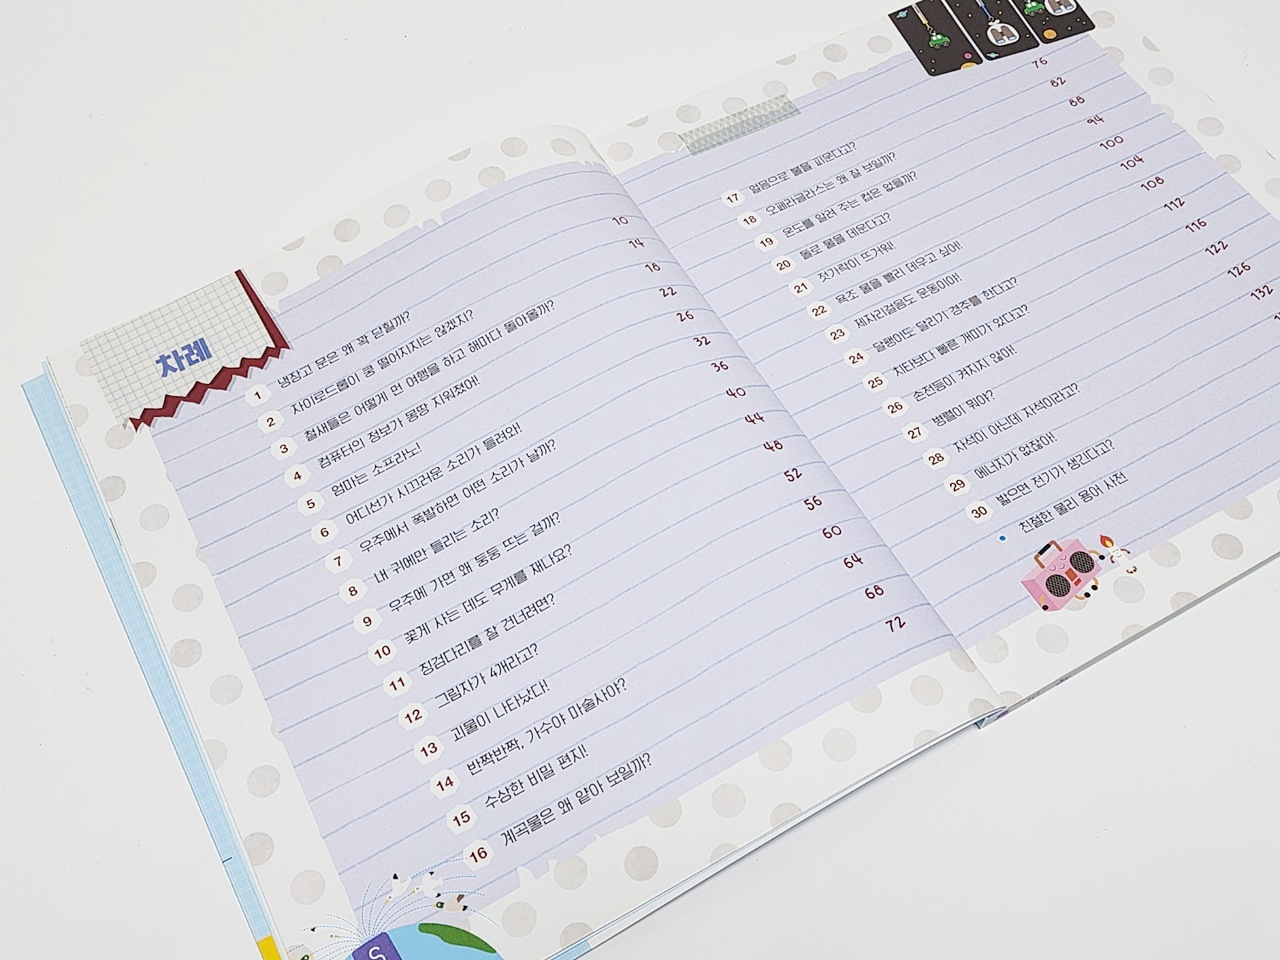 차례
1 냉장고 문은 왜 꽉 닫힐까? 10
2 자이로드롭이 쿵 떨어지지는 않겠지? 14
3 철새들은 어떻게 먼 여행을 하고 해마다 돌아올까? 18
4 컴퓨터의 정보가 몽땅 지워졌어! 22
5 엄마는 소프라노! 26
6 어디선가 시끄러운 소리가 들려와! 32
7 우주에서 폭발하면 어떤 소리가 날까? 36
8 내 귀에만 들리는 소리? 40
9 우주에 가면 왜 둥둥 뜨는 걸까? 44
10 꽃게 사는 데도 무게를 재나요? 48
11 징검다리를 잘 건너려면? 52
12 그림자가 4개라고? 56
13 괴물이 나타났다! 60
14 반짝반짝, 가수야 마술사야? 64
15 수상한 비밀 편지! 68
16 계곡물은 왜 얕아 보일까? 72
17 얼음으로 불을 피운다고? 76
18 오페라글라스는 왜 잘 보일까? 82
19 온도를 알려 주는 컵은 없을까? 88
20 돌로 물을 데운다고? 94
21 젓가락이 뜨거워! 100
22 욕조 물을 빨리 데우고 싶어! 104
23 제자리걸음도 운동이야! 108
24 달팽이도 달리기 경주를 한다고? 112
25 치타보다 빠른 개미가 있다고? 116
26 손전등이 켜지지 않아! 122
27 병렬이 뭐야? 126
28 자석이 아닌데 자석이라고? 132
29 에너지가 없잖아!
30 밟으면 전기가 생긴다고?
친절한 물리 용어 사전
S